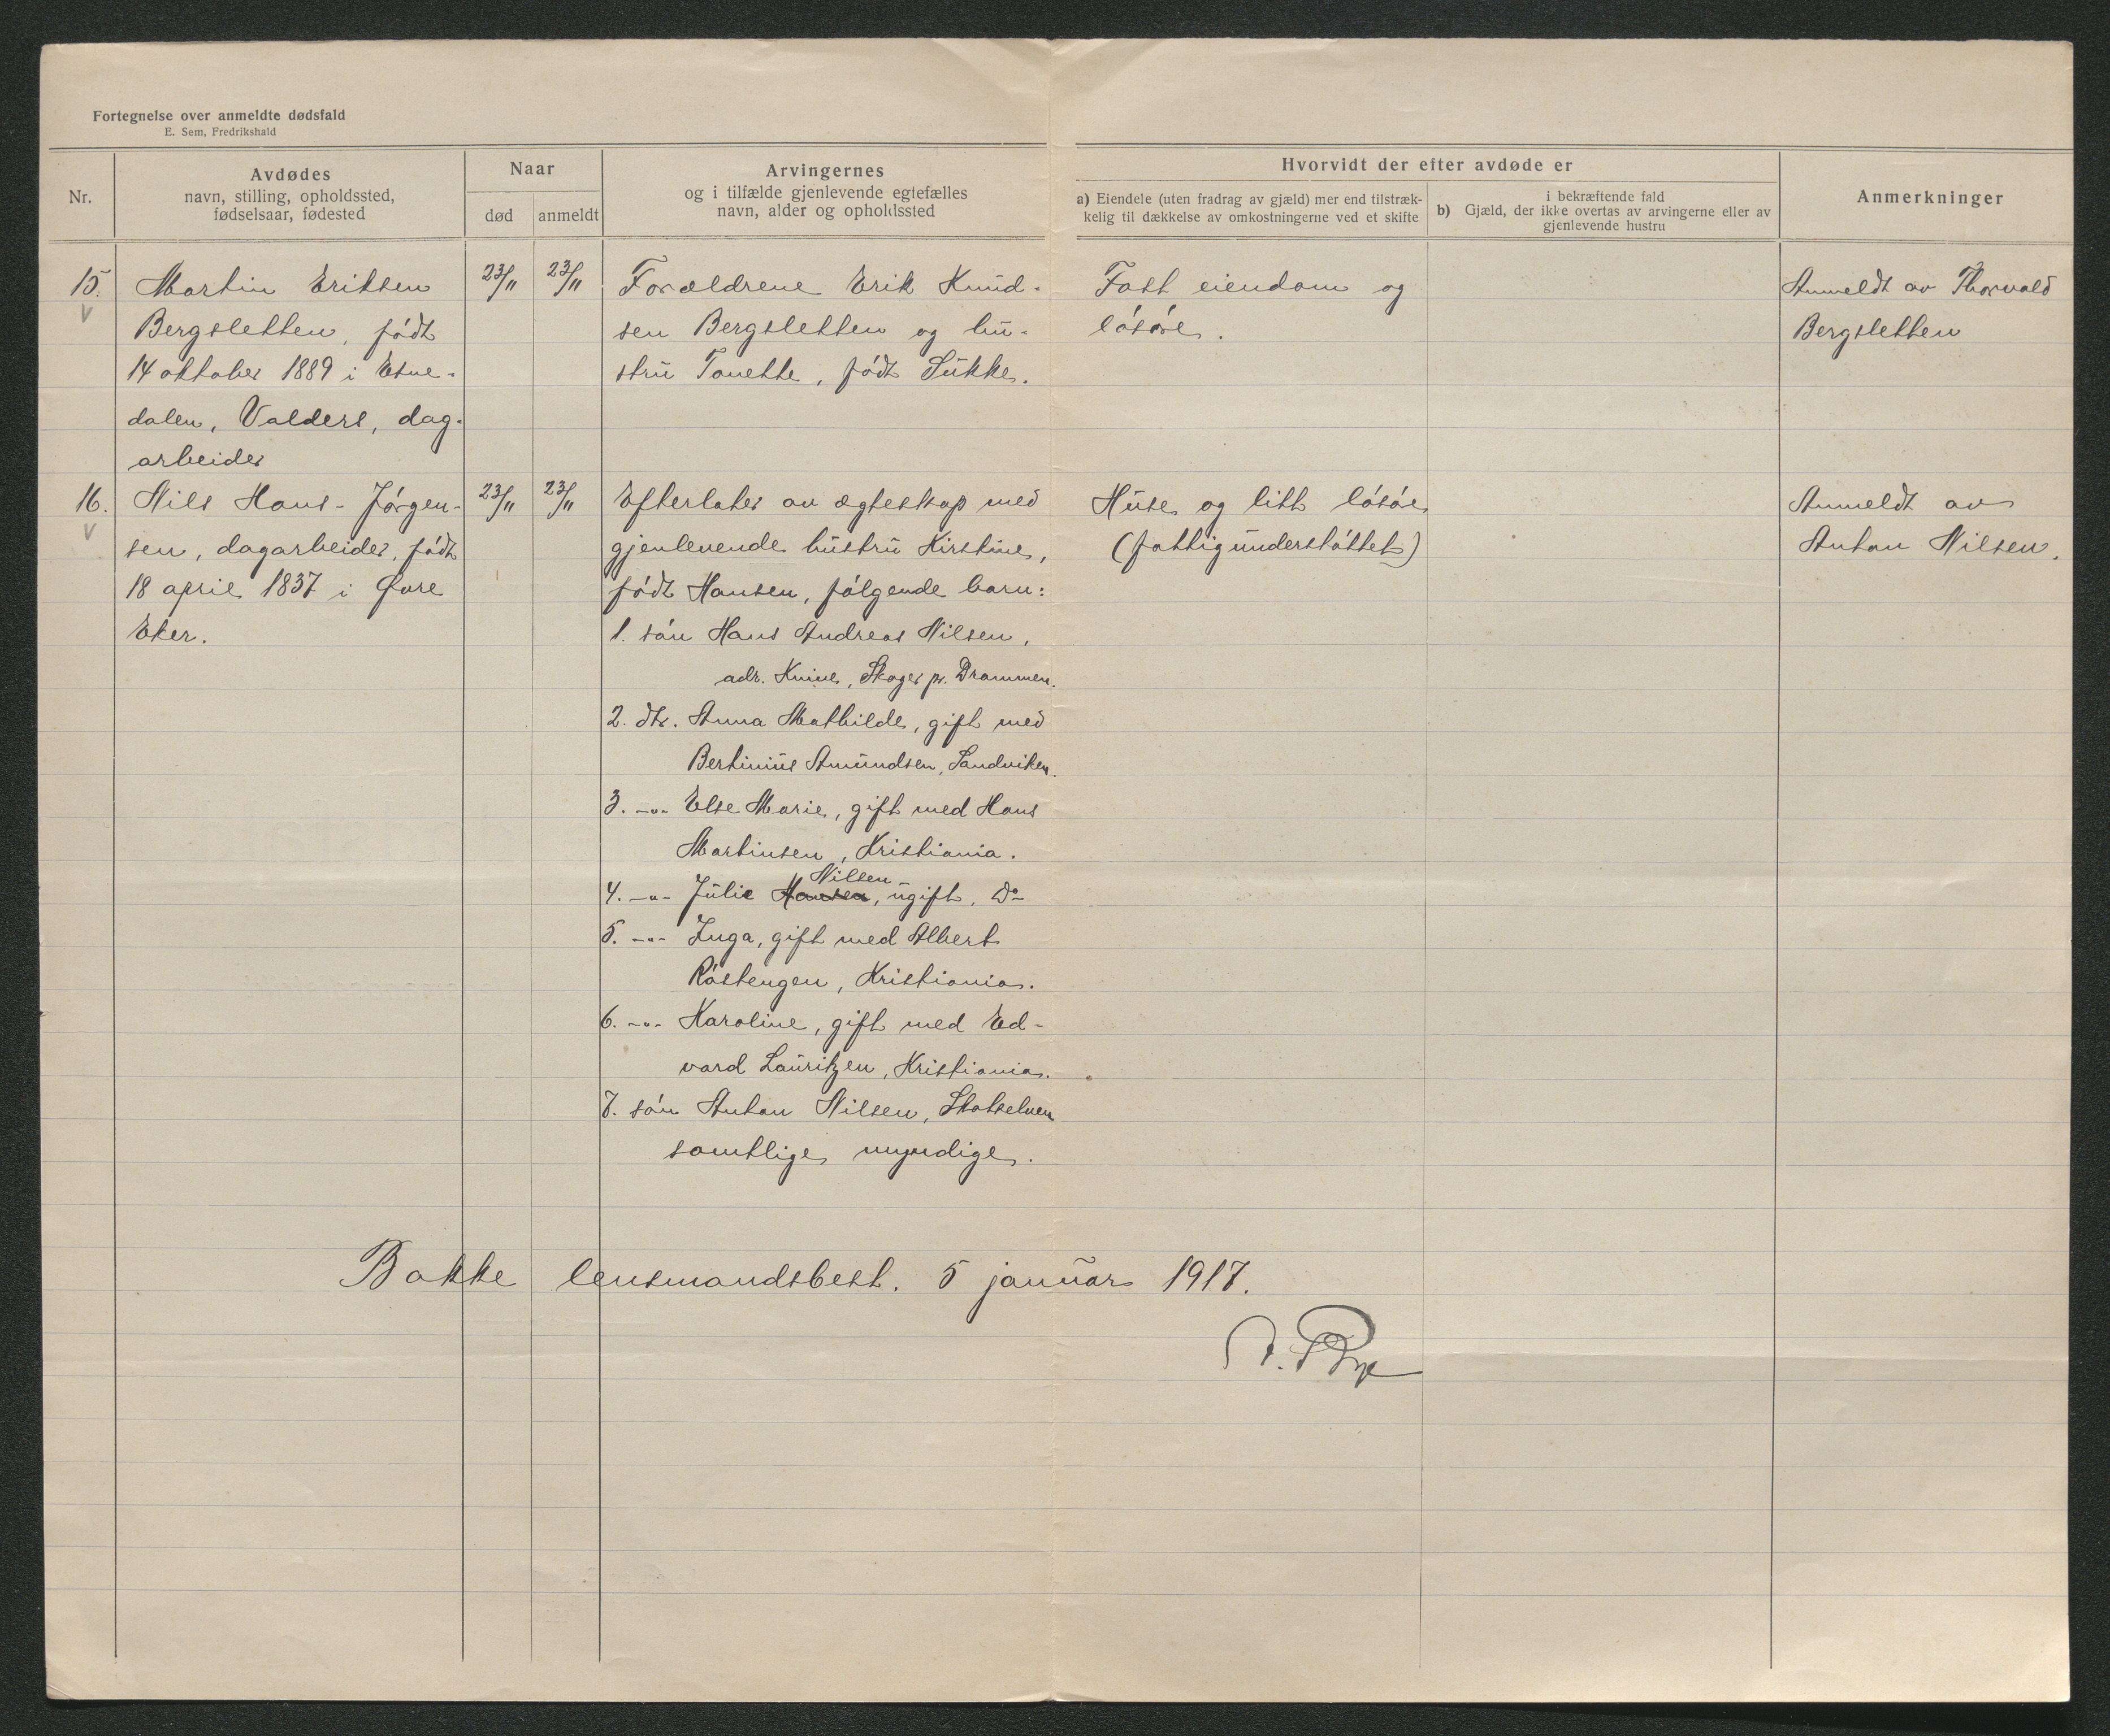 Fortegnelse over anmeldte dødsfald
E. Sem, Fredrikshald
Nr.
Avdødes
navn, stilling, opholdssted,
fødselsaar, fødested
Naar
død
anmeldt
Arvingernes
og i tilfælde gjenlevende egtefælles
navn, alder og opholdssted
Hvorvidt der efter avdøde er
a) Eiendele (uten fradrag av gjæld) mer end tilstræk-
kelig til dækkelse av omkostningerne ved et skifte
i bekræftende fald
b) Gjæld, der ikke overtas av arvingerne eller av
gjenlevende hustru
Anmerkninger
15.
Martin Eriksen
Bergsletten, født
14 oktober 1889 i Etne-
dalen, Valders, dag-
arbeider
23/11
23/11
Forældrene Erik Knud-
sen Bergsletten og hu-
stru Tonette, født Lukke.
Fast eiendom og
løsøre.
Anmeldt av Thorvald
Bergsletten
16.
Nils Hans-Jørgen-
sen, dagarbeider, født
18 april 1837 i Øvre
Eker.
23/11
23/11
Efterlater av egteskap med
gjenlevende hustru Kirstine,
født Hansen, følgende barn:
1. søn Hans Andreas Nilsen,
adr. Knive, Skoger pr. Drammen.
2. dtr. Anna Mathilde, gift med
Bertinius Amundsen, Sandviken.
3. -"- Else Marie, gift med Hans
Martinsen, Kristiania.
Nilsen
4. -"- Julie Hansen, ugift, Do
5. -"- Inga, gift med Albert
Røstengen, Kristiania.
6. -"- Karoline, gift med Ed-
vard Lauritzen, Kristiania.
7. søn Anton Nilsen, Skotselven
samtlige myndige.
Huse og litt løsøre
(fattigunderstøttet)
Anmeldt av
Anton Nilsen.
Bakke lensmandsbest. 5 januar 1917.